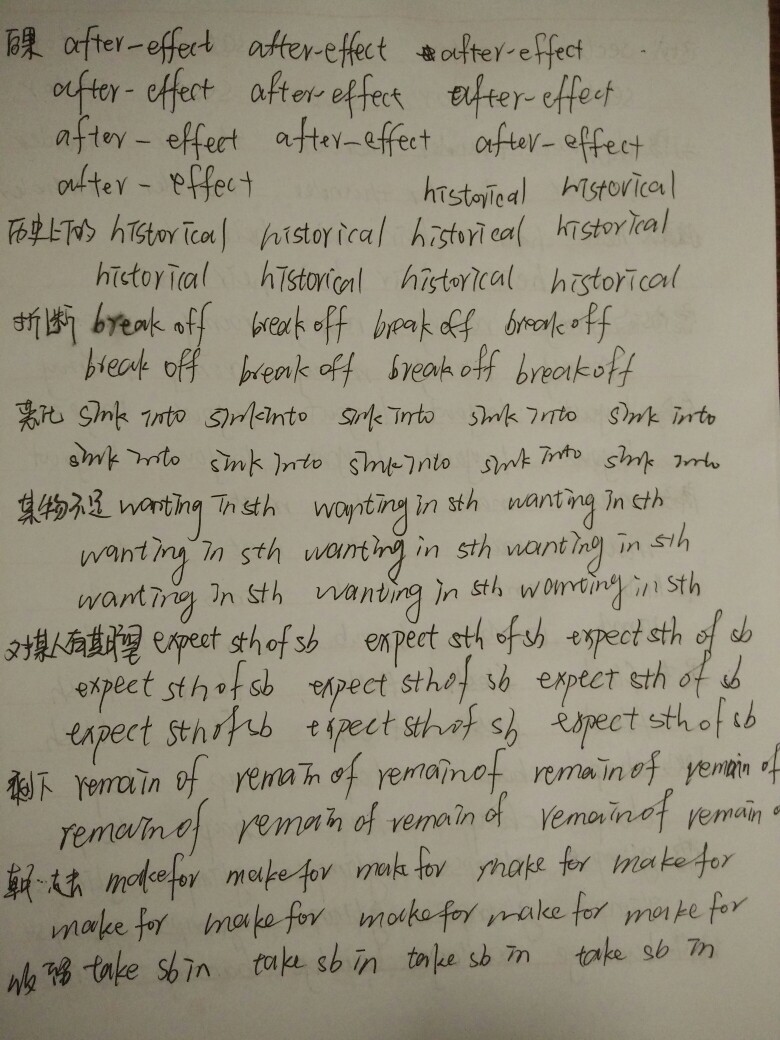 后果 after-effect after-effect after-effect
after-effect after-effect after-effect
after-effect after-effect after-effect
after-effect historical historical
历史上的 historical historical historical historical
historical historical historical historical
折断 break off break off break off break off
break off break off break off break off
sink into sink into sink into sink into sink into
sink into sink into sink into sink into sink into
某物不足 wanting in sth wanting in sth wanting in sth
wanting in sth wanting in sth wanting in sth
wanting in sth wanting in sth wanting in sth
对某人有期望 expect sth of sb expect sth of sb expect sth of sb
expect sth of sb expect sth of sb expect sth of sb
expect sth of sb expect sth of sb expect sth of sb
剩下 remain of remain of remain of remain of remain of
remain of remain of remain of remain of remain
朝…走去 make for make for mak for make for make for
make for make for make for make for make for
take sb in take sb in take sb in take sb in